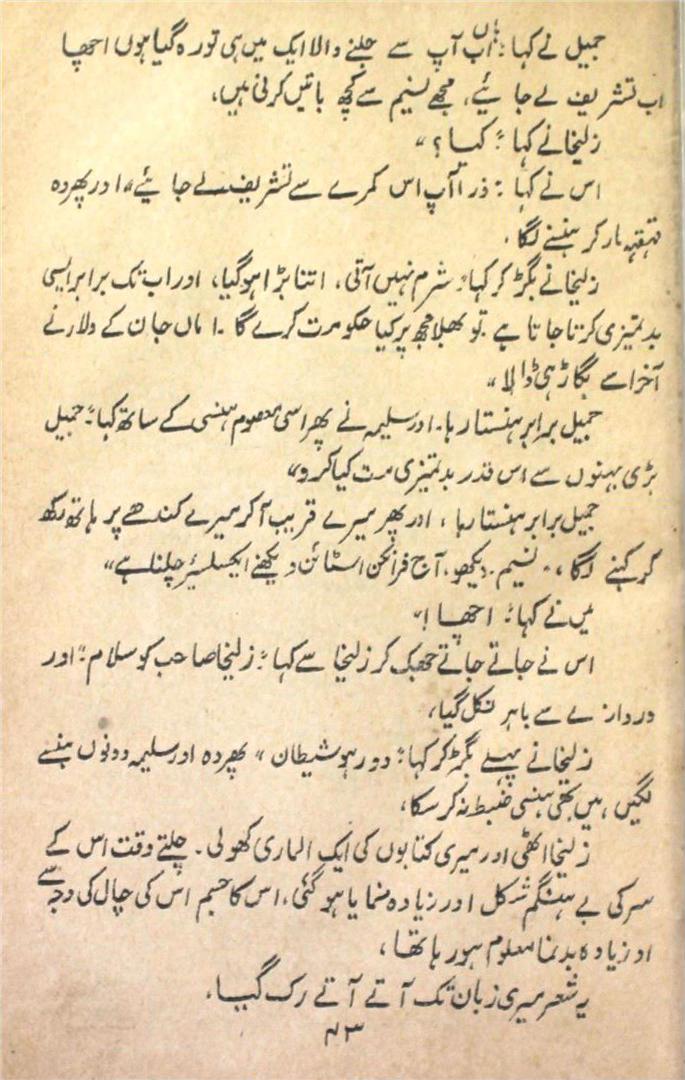 جمیل نے کہا: "ہاں اب آپ سے جلنے والا ایک میں ہی تو رہ گیا ہوں اچھا
اب تشریف لے جائیے، مجھے نسیم سے کچھ باتیں کرنی ہیں،
زلیخا نے کہا: "کیا؟"
اس نے کہا: ذرا آپ اس کمرے سے تشریف لے جائیے" اور پھر وہ
قہقہہ مار کر ہنسنے لگا،
زلیخا نے بگڑ کر کہا: شرم نہیں آتی، اتنا بڑا ہو گیا، اور اب تک برابر ایسی
بدتمیزی کرتا جاتا ہے۔ تو بھلا مجھ پر کیا حکومت کرے گا۔ اماں جان کے دلار نے
آخر اسے بگاڑ ہی ڈالا"
جمیل برابر ہنستا رہا۔ اور سلیمہ نے پھر اسی معصوم ہنسی کے ساتھ کہا: "جمیل
بڑی بہنوں سے اس قدر بدتمیزی مت کیا کرو"
جمیل برابر ہنستا رہا، اور پھر میرے قریب آ کر میرے کندھے پر ہاتھ رکھ
کر کہنے لگا، "نسیم۔ دیکھو، آج فرانکن اسٹائن دیکھنے ایکسلیئر چلنا ہے"
میں نے کہا: "اچھا!"
اس نے جاتے جاتے جھک کر زلیخا سے کہا: "زلیخا صاحب کو سلام" اور
دروازے سے باہر نکل گیا،
زلیخا نے پہلے بگڑ کر کہا: "دور ہو شیطان" پھر وہ اور سلیمہ دونوں ہنسنے
لگیں، میں بھی ہنسی ضبط نہ کر سکا،
زلیخا اٹھی اور میری کتابوں کی ایک الماری کھولی۔ چلتے وقت اس کے
سر کی بے ہنگم شکل اور زیادہ نمایا ہو گئی، اس کا جسم اس کی چال کی وجہ سے
اور زیادہ بدنما معلوم ہو رہا تھا،
یہ شعر میری زبان تک آتے آتے رک گیا،
۴۳